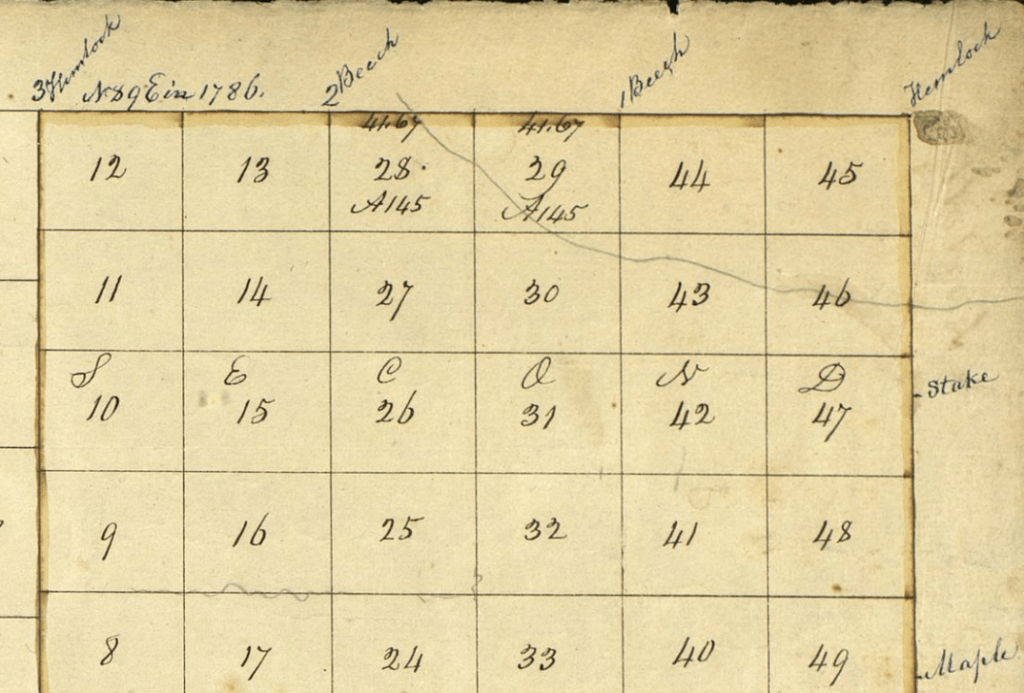 3 Hemlock 2 Beech 1 Beech Hemlock
N 89 E in 1786.
41.67 41.67
12 13 28. 29 44 45
A145 A145
11 14 27 30 43 46
S E C O N D
Stake
10 15 26 31 42 47
9 16 25 32 41 48
8 17 24 33 40 49
Maple